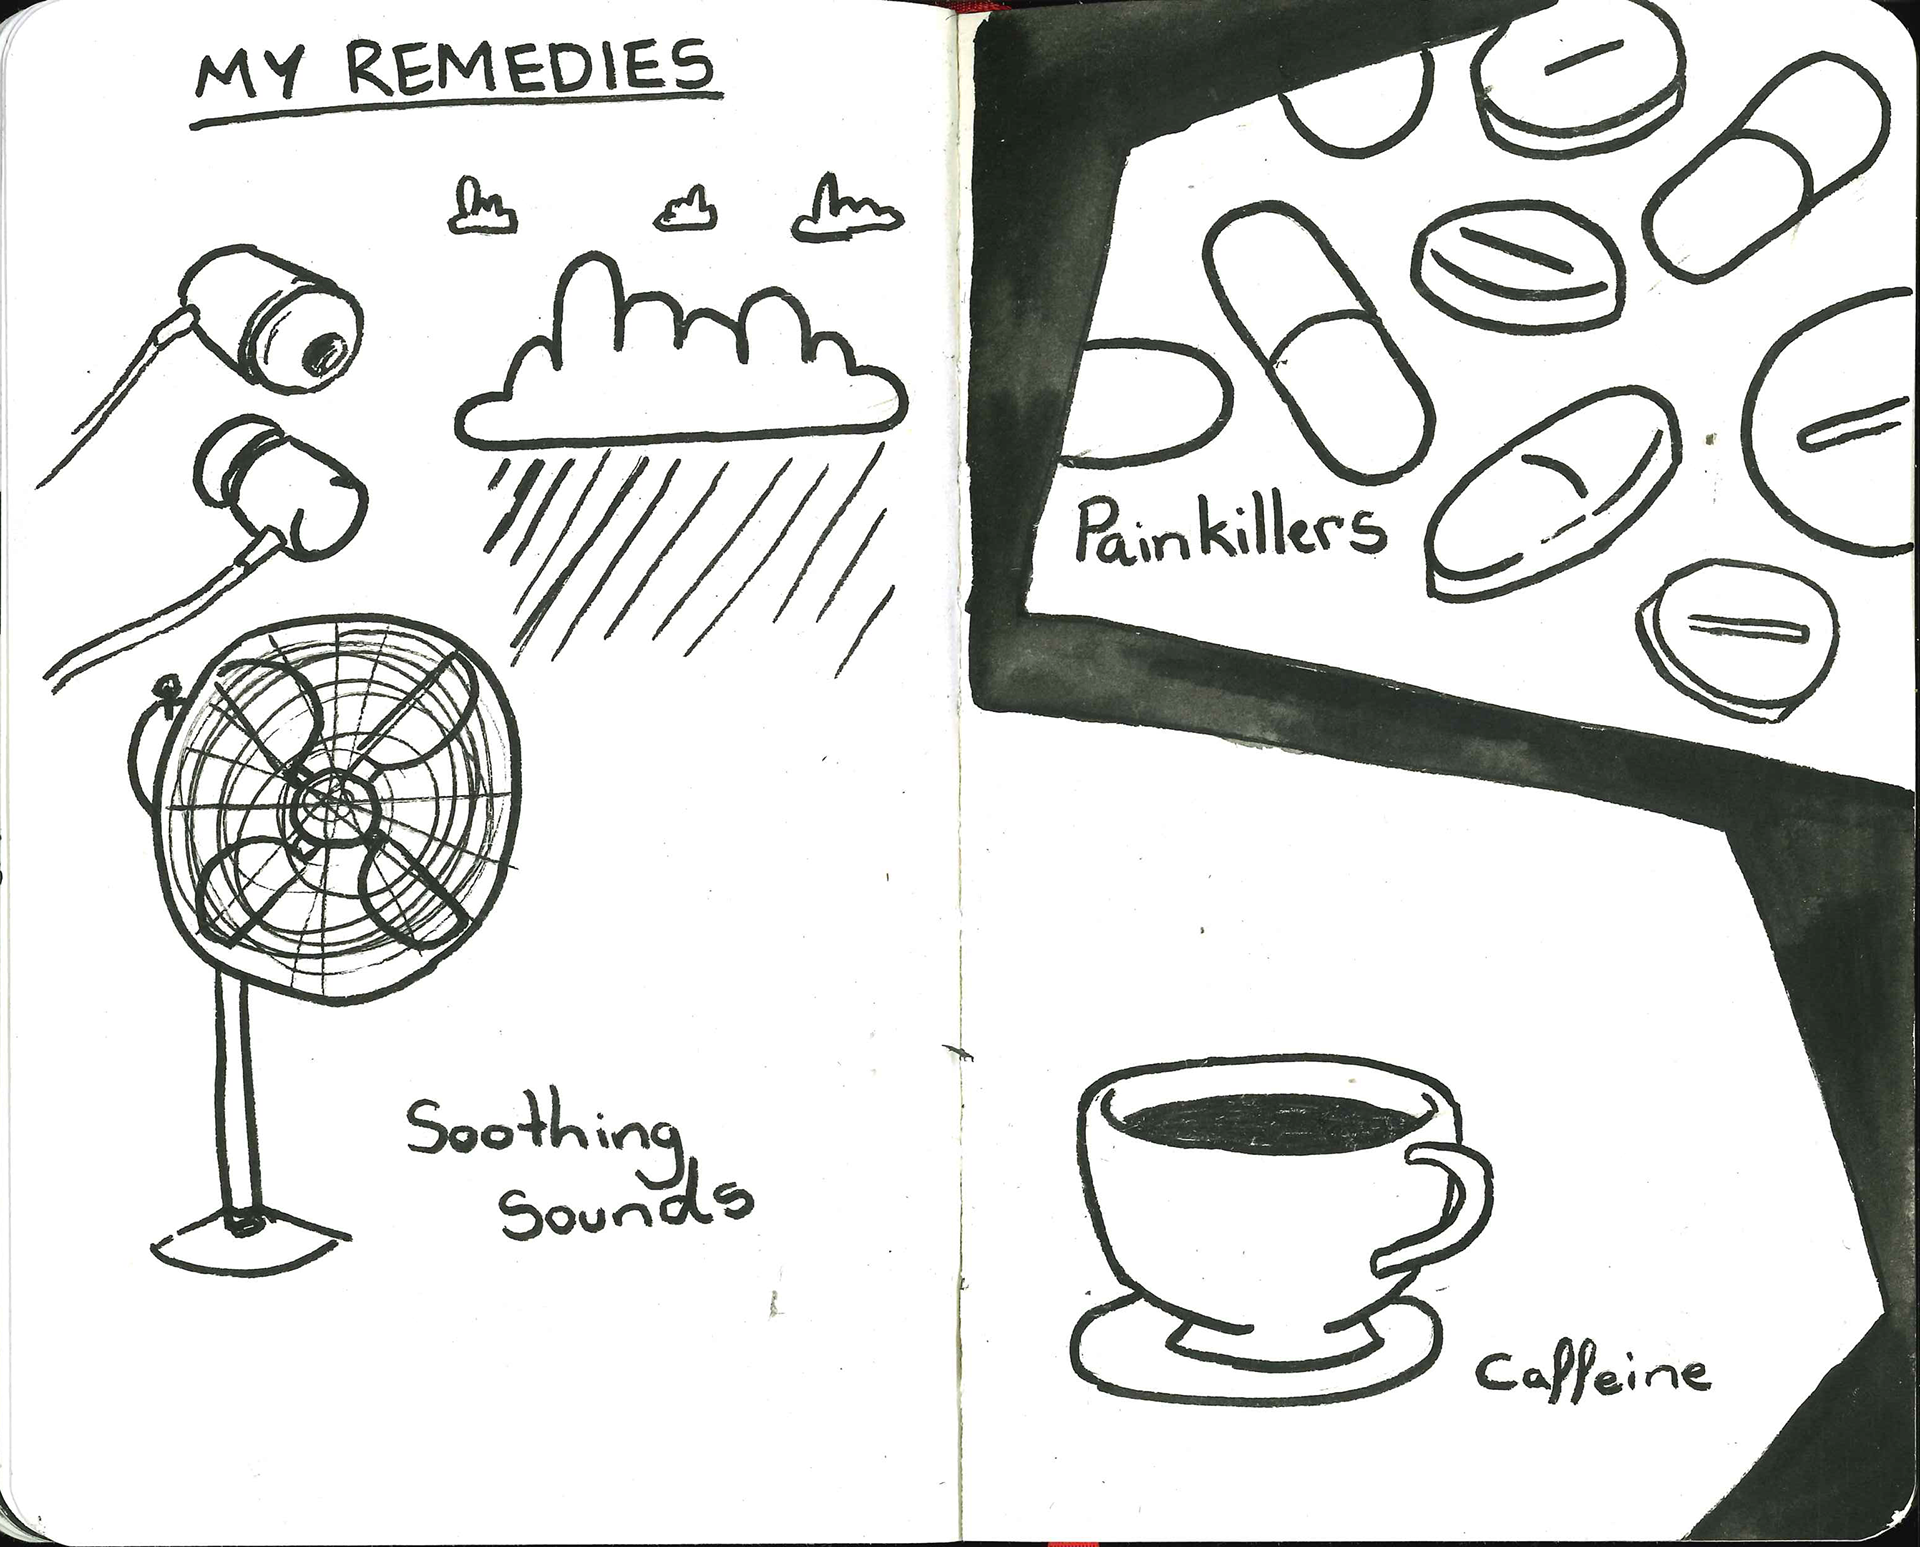 MY REMEDIES
Soothing
Sounds
Painkillers
Caffeine